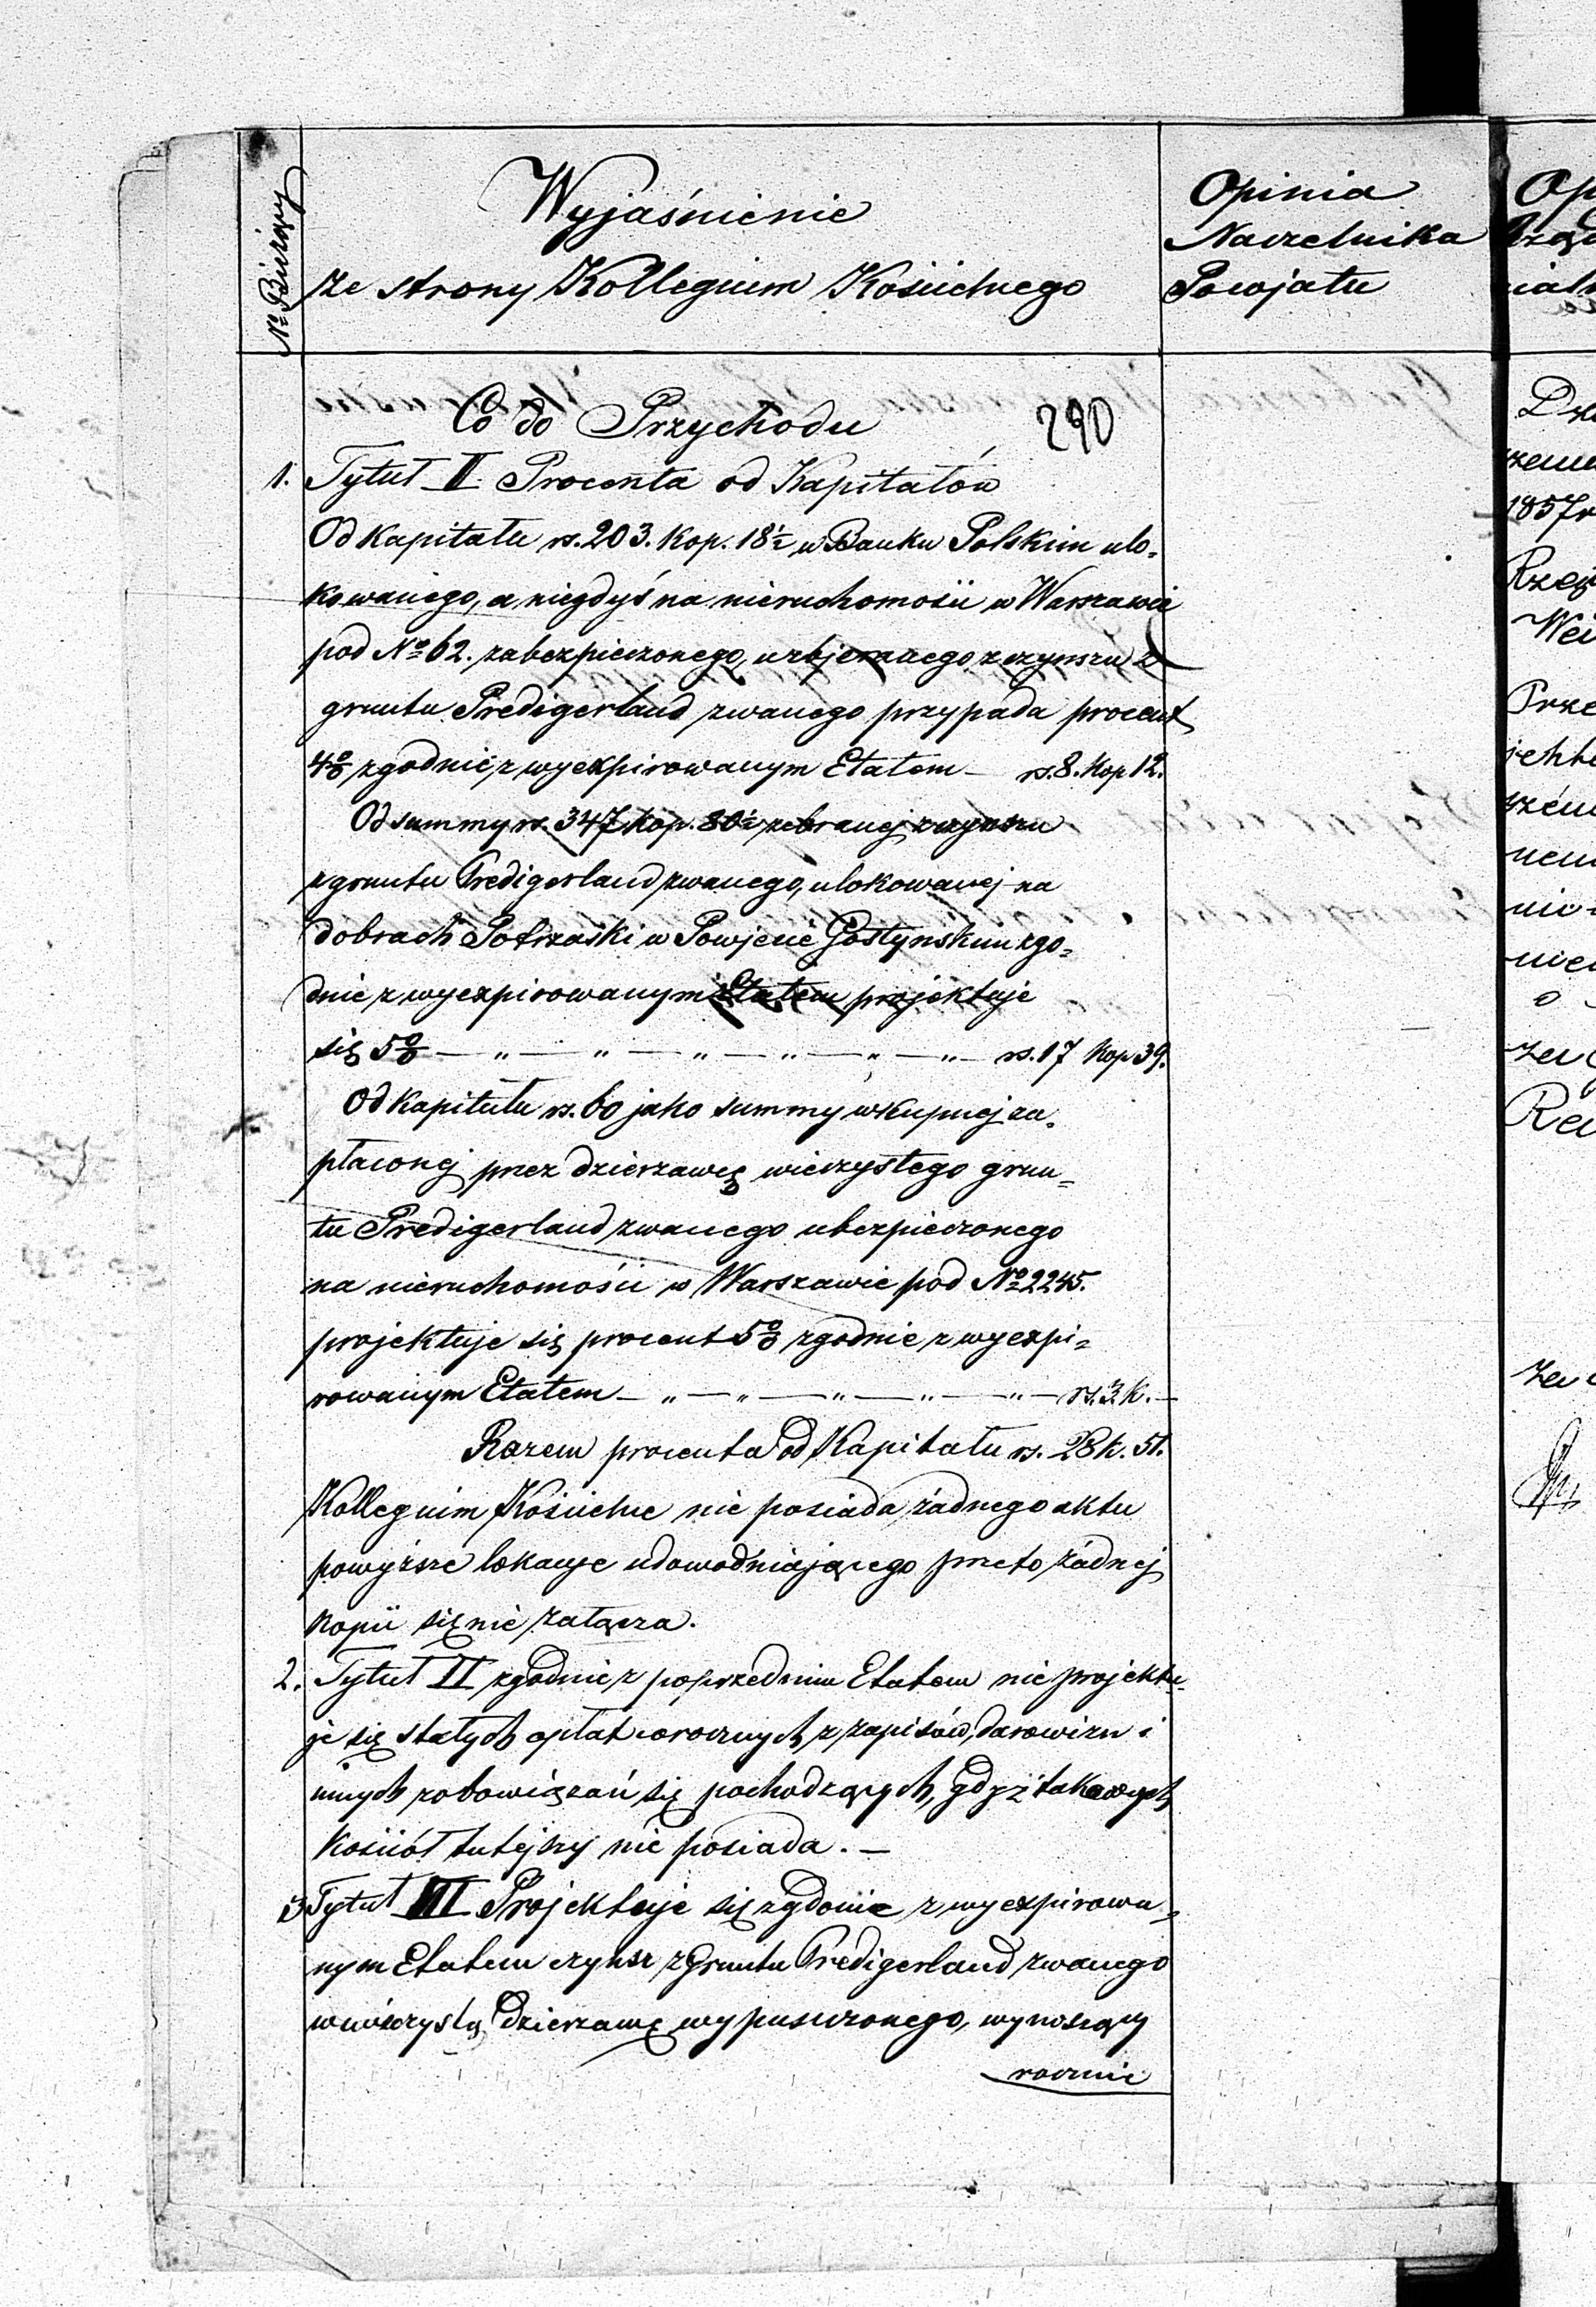 Nº Bieżący
Wyjaśnienie
ze strony Kollegium Kościelnego
Opinia
Naczelnika
Powjatu
Co do Przychodu
290
1. Tytuł II. Procenta od Kapitałów
Od Kapitału rs. 203. kop. 18½ w Banku Polskim ulo=
kowanego, a niegdyś na nieruchomości w Warszawie
pod Nº 62. zabezpieczonego, uzbjeranego z czynszu z
gruntu Predigerland zwanego przypada procent
4% zgodnie z wyexpirowanym Etatem — rs. 8. Kop 12.
Od summy rs. 347 Kop. 80½ zebranej z czynszu
z gruntu Predigerland zwanego, ulokowanej na
dobrach Potrzaski w Powjecie Gostynskim zgo=
dnie z wyexpirowanym Etatem projektuje
się 5% — „ — „ — „ — „ — „ — „ — rs. 17 Kop 39.
Od Kapitału rs. 60 jako summy wkupnej za=
płaconej przez dzierzawcę wieczystego grun=
tu Predigerland zwanego ubezpieczonego
na nieruchomości w Warszawie pod Nº 2245.
projektuje się procent 5% zgodnie z wyexpi=
rowanym Etatem — „ — „ — „ — „ — „ — rs. 3. k. —
Razem procenta od Kapitału rs. 28 k. 51.
Kollegium Kościelne nie posiada żadnego aktu
powyższe lokacye udowodniającego przeto żadnej
kopii się nie załącza.
2. Tytuł II zgodnie z poprzednim Etatem nie projektu=
je się stałych opłat corocznych z zapisów, darowizn i
innych zobowiązań się pochodzących, gdyż takowych
Kościół tutejszy nie posiada. —
3 Tytuł III Projektuje się zgdonie z wyexpirowa=
nym Etatem czynsz z Gruntu Predigerland zwanego
w wieczystą dzierzawę wypuszczonego, wynoszący
rocznie
1857r